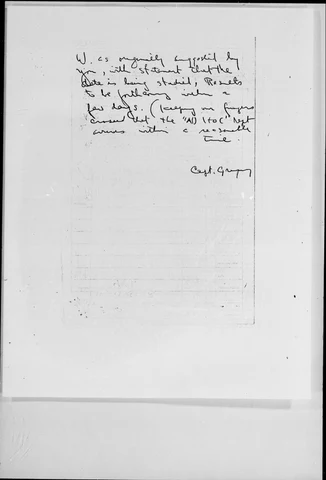 W. as originally suggested by
you, with statement that the
data is being studied, Results
to be forthcoming within a
few days. (keeping our fingers
crossed that the "AD HOC" rept
arrives within a reasonable
time.
Capt. Gregory